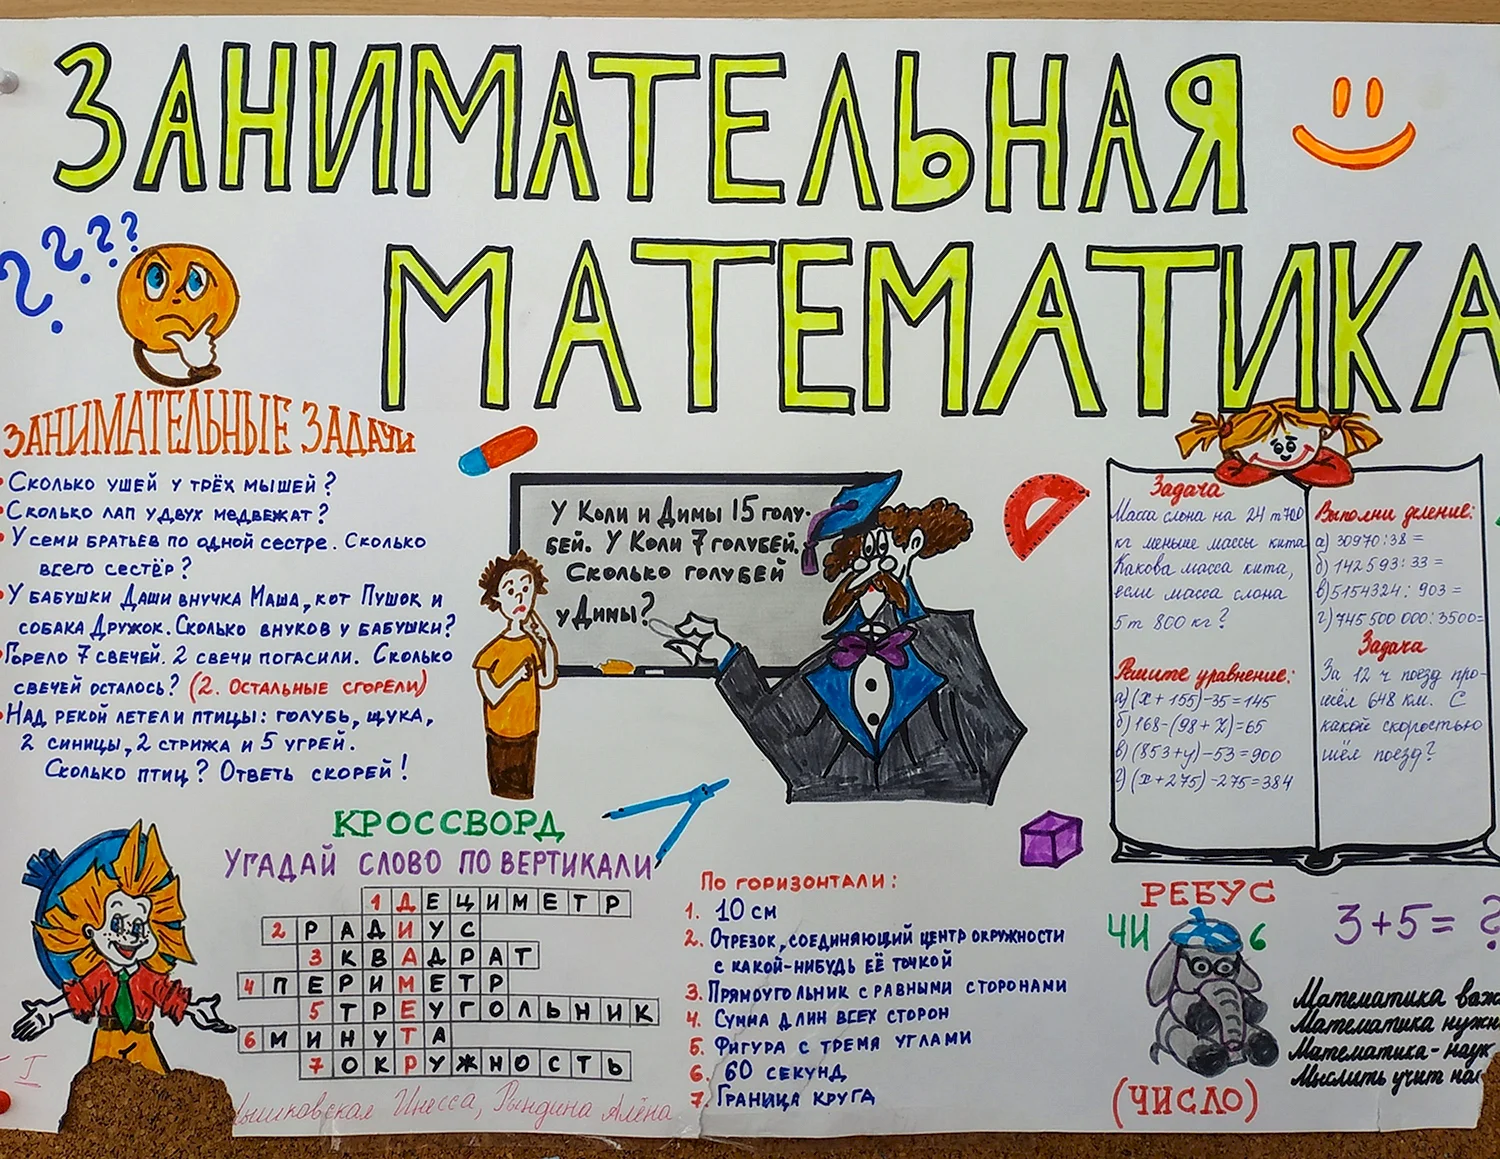 ЗАНИМАТЕЛЬНАЯ
МАТЕМАТИКА
????
ЗАНИМАТЕЛЬНЫЕ ЗАДАЧИ
• Сколько ушей у трёх мышей?
• Сколько лап у двух медвежат?
• У семи братьев по одной сестре. Сколько
всего сестёр?
• У бабушки Даши внучка Маша, кот Пушок и
собака Дружок. Сколько внуков у бабушки?
• Горело 7 свечей. 2 свечи погасили. Сколько
свечей осталось? (2. Остальные сгорели)
• Над рекой летели птицы: голубь, щука,
2 синицы, 2 стрижа и 5 угрей.
Сколько птиц? Ответь скорей!
У Коли и Димы 15 голу-
бей. У Коли 7 голубей.
Сколько голубей
у Димы?
Задача
Масса слона на 24 т 700
кг меньше массы кита
Какова масса кита,
если масса слона
5 т 800 кг?
Решите уравнение:
а) (x + 155) - 35 = 145
б) 168 - (98 + Z) = 65
в) (853 + y) - 53 = 900
г) (x + 275) - 275 = 384
Выполни деление:
а) 30970 : 38 =
б) 142593 : 33 =
в) 5154324 : 903 =
г) 745500000 : 3500=
Задача
За 12 ч поезд про-
шёл 648 км. С
какой скоростью
шёл поезд?
КРОССВОРД
УГАДАЙ СЛОВО ПО ВЕРТИКАЛИ
1 ДЕЦИМЕТР
2 РАДИУС
3 КВАДРАТ
4 ПЕРИМЕТР
5 ТРЕУГОЛЬНИК
6 МИНУТА
7 ОКРУЖНОСТЬ
По горизонтали:
1. 10 см
2. Отрезок, соединяющий центр окружности
с какой-нибудь её точкой
3. Прямоугольник с равными сторонами
4. Сумма длин всех сторон
5. Фигура с тремя углами
6. 60 секунд
7. Граница круга
РЕБУС
ЧИ 6
(ЧИСЛО)
3+5= ?
Математика
Математика
Математика - наук
Мыслить учит нас
Инесса, Рындина Алёна